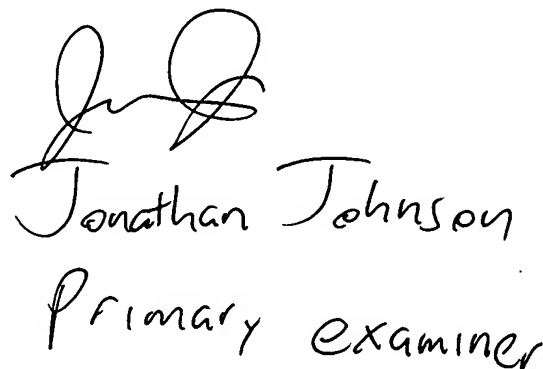 Jonathan Johnson
Primary examiner